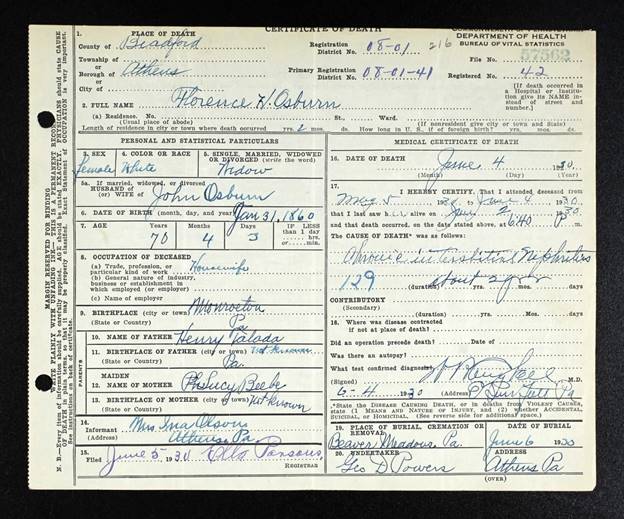 CERTIFICATE OF DEATH
1. PLACE OF DEATH
County of Bradford
Registration District No. 08-01 216
DEPARTMENT OF HEALTH
BUREAU OF VITAL STATISTICS
Township of
or
Borough of Athens
or
City of
Primary Registration District No. 08-01-41
File No. 57562
Registered No. 42
(If death occurred in a Hospital or Institution give its NAME instead of street and number.)
2. FULL NAME Florence H. Osburn
(a) Residence. No. St., Ward.
(Usual place of abode) (If nonresident give city or town and State)
Length of residence in city or town where death occurred yrs. 2 mos. ds. How long in U. S., if of foreign birth? yrs. mos. ds.
PERSONAL AND STATISTICAL PARTICULARS
3. SEX Female
4. COLOR OR RACE White
5. SINGLE, MARRIED, WIDOWED OR DIVORCED (write the word) Widow
5a. If married, widowed, or divorced
HUSBAND of
(or) WIFE of John Osburn
6. DATE OF BIRTH (month, day, and year) Jan 31, 1860
7. AGE Years 70 Months 4 Days 3 IF LESS than 1 day hrs. or min.
8. OCCUPATION OF DECEASED
(a) Trade, profession, or particular kind of work Housewife
(b) General nature of industry, business or establishment in which employed (or employer)
(c) Name of employer
9. BIRTHPLACE (city or town) Monroeton
(State or Country) Pa
10. NAME OF FATHER Henry
11. BIRTHPLACE OF FATHER (city or town) Not known
(State or Country) Pa.
12. MAIDEN NAME OF MOTHER Beebe
13. BIRTHPLACE OF MOTHER (city or town) Not known
(State or Country)
14. Informant Mrs Ina Olson
(Address) Athens Pa
15. Filed June 5 1930 Parsons
REGISTRAR
MEDICAL CERTIFICATE OF DEATH
16. DATE OF DEATH June 4 1930
(Month) (Day) (Year)
17. I HEREBY CERTIFY, That I attended deceased from
May 5 to June 4 1930
that I last saw h alive on June 2 1930
and that death occurred, on the date stated above, at 6:40 P m.
The CAUSE OF DEATH* was as follows:
Chronic interstitial Nephritis
129 about 2 yrs
(duration) yrs. mos. ds.
CONTRIBUTORY
(Secondary)
(duration) yrs. mos. ds.
18. Where was disease contracted
if not at place of death?
Did an operation precede death? Date of
Was there an autopsy?
What test confirmed diagnosis?
(Signed) M.D.
6-4 1930 (Address) Pa
*State the DISEASE CAUSING DEATH, or in deaths from VIOLENT CAUSES, state (1) MEANS AND NATURE OF INJURY, and (2) whether ACCIDENTAL, SUICIDAL, or HOMICIDAL. (See reverse side for additional space.)
19. PLACE OF BURIAL, CREMATION OR REMOVAL
Beaver Meadows, Pa.
DATE OF BURIAL
June 6 1930
20. UNDERTAKER
Geo D Powers
ADDRESS
Athens Pa
(OVER)
MARGIN RESERVED FOR BINDING
WRITE PLAINLY WITH UNFADING INK—THIS IS A PERMANENT RECORD